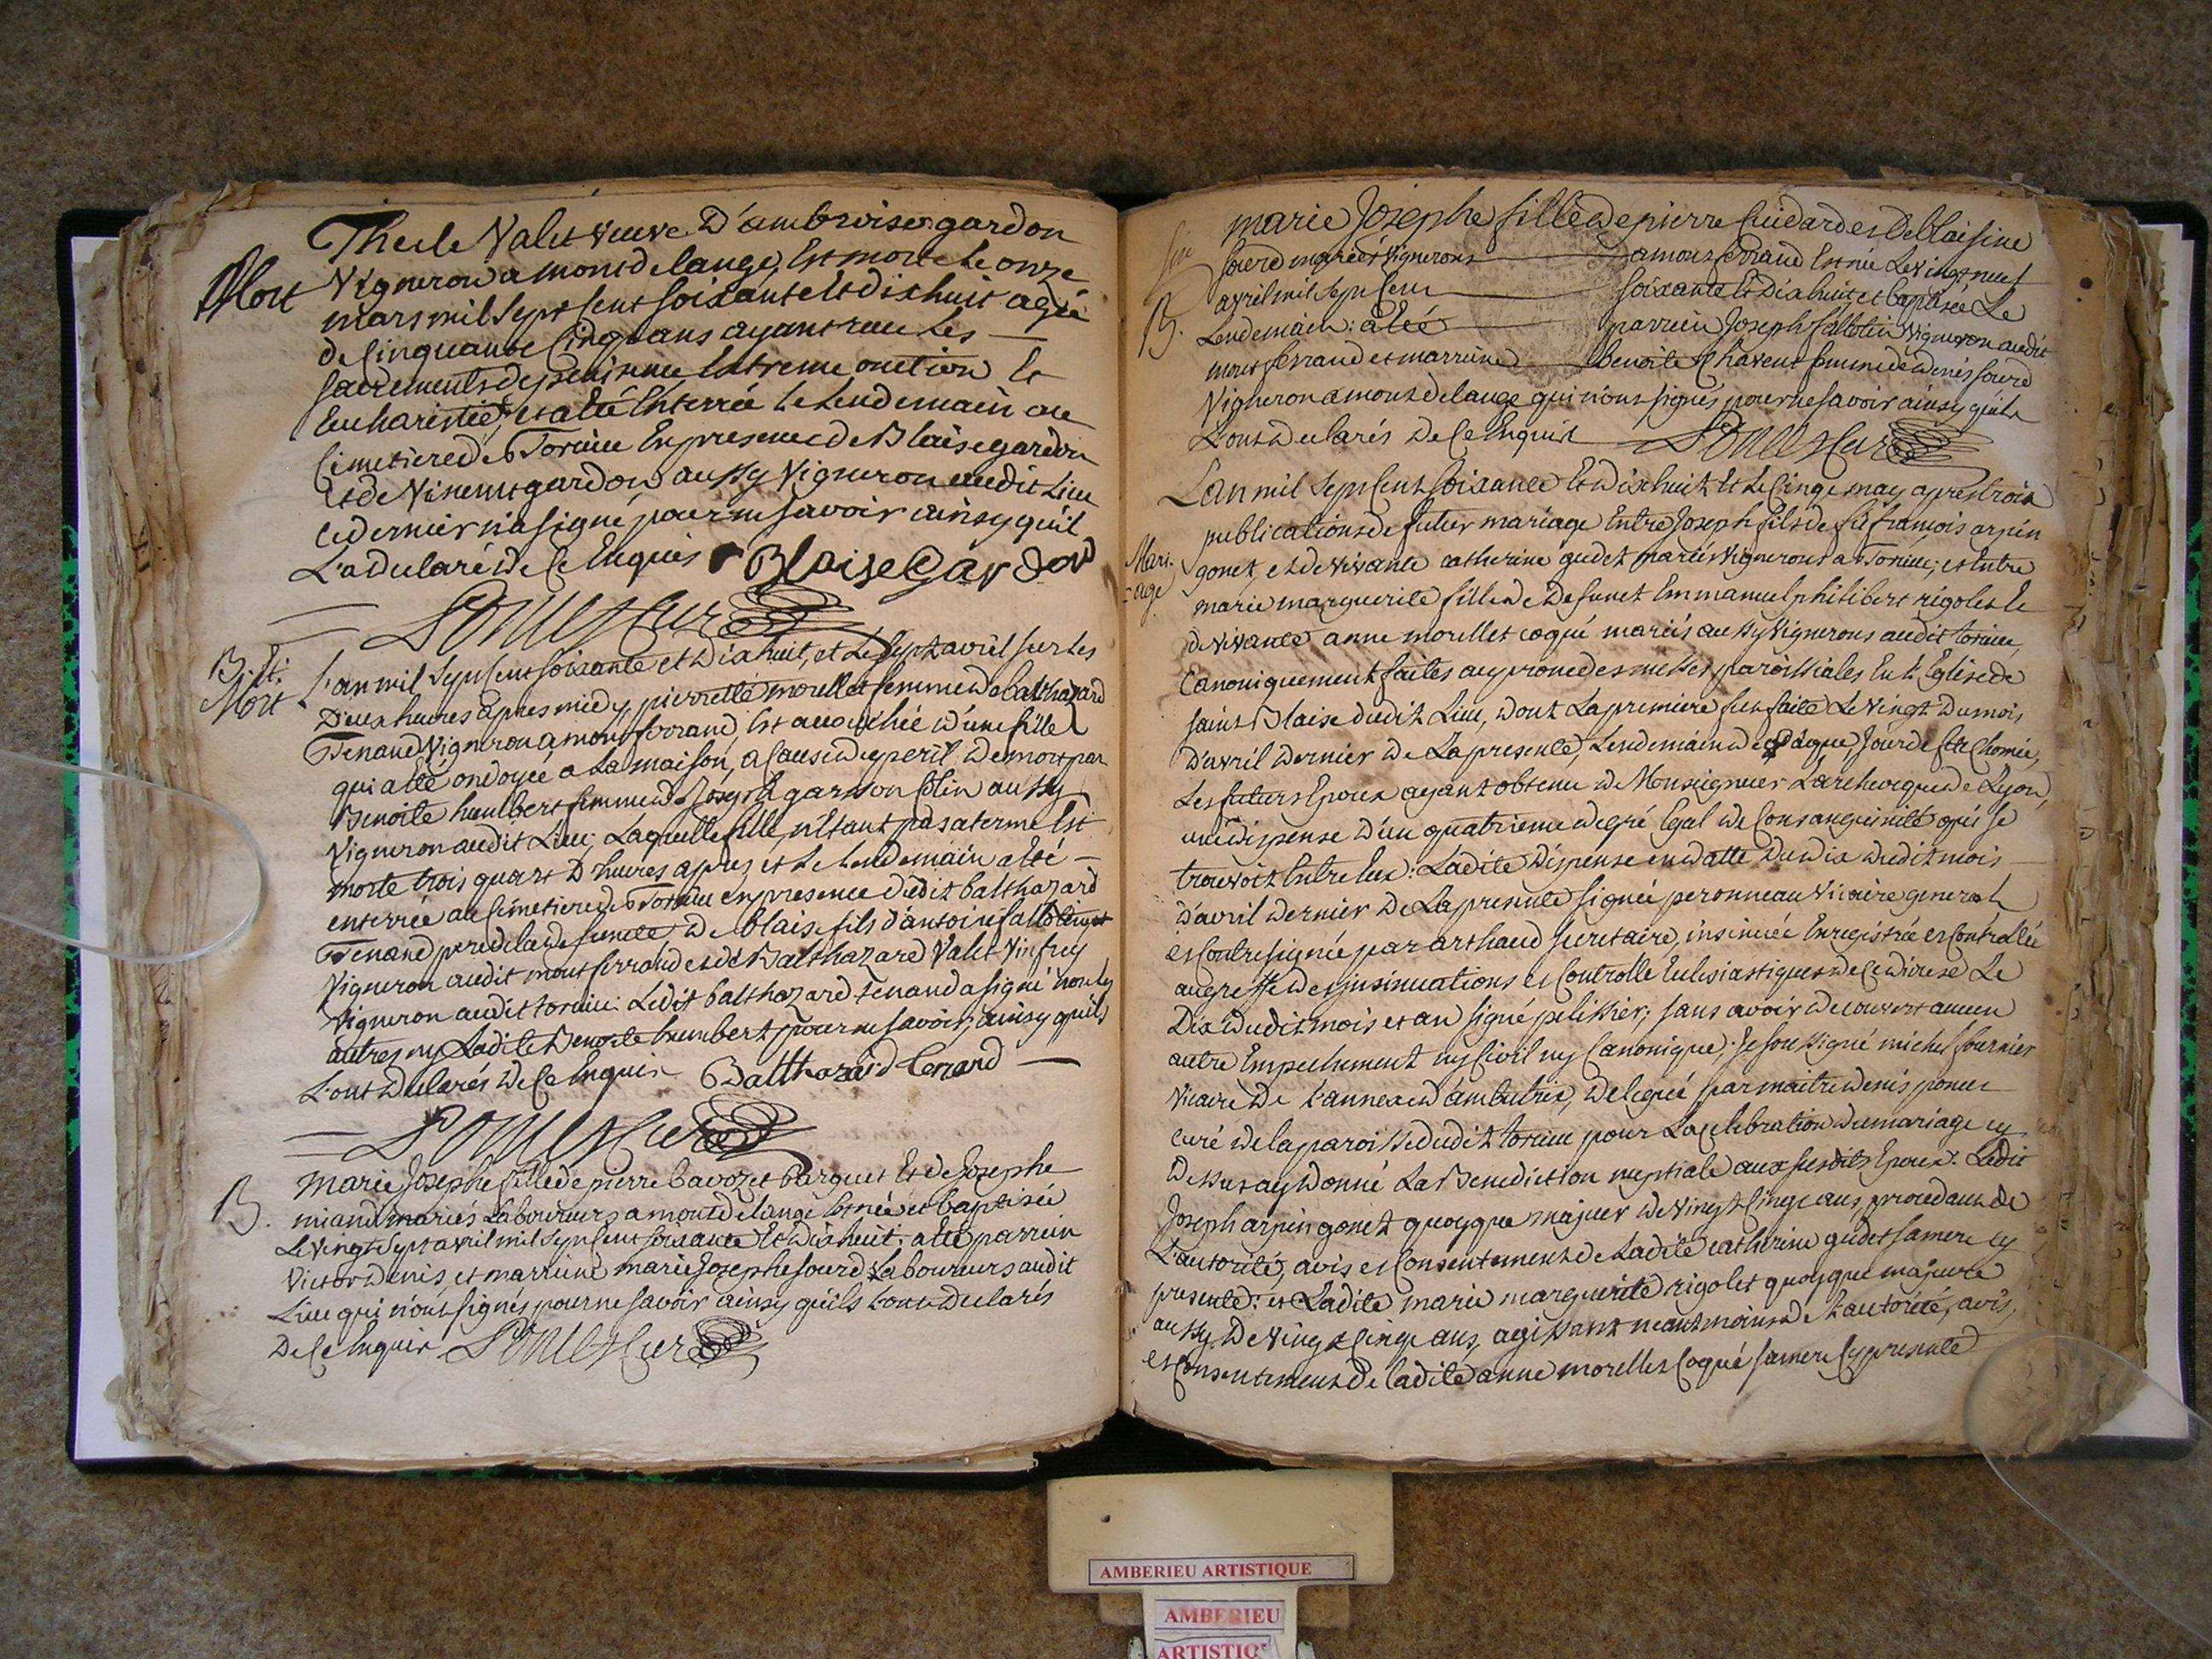 Thecle Valet veuve D'ambroise gardon
Mort
Vigneron a montdelange, Est morte Le onze
mars mil sept cent soixante et dixhuit agée
de Cinquante Cinq ans ayant reçu Les
sacrements de penitence Extreme onction et
Eucharistie, et a été Enterrée Le Lendemain au
Cimetiere de Torcieu En presence de Blaise gardon
et de Vincent gardon aussy Vigneron audit Lieu
ce dernier n'a signé pour ne savoir ainsy qu'il
L'a declaré de Ce Enquis Blaise Gardon
Ponces Curé
B. Et.
Mort
L'an mil sept cent soixante et dixhuit, et Le sept avril sur Les
Deux heures apres midy, pierrette morellet femme de balthazard
Tenand Vigneron a montferrand, Est accouchée d'une fille
qui a été ondoyée a La maison, a Cause du peril de mort par
Benoite humbert femme de Joseph gardon Colin aussy
Vigneron audit Lieu; Laquelle fille n'étant pas a terme Est
morte trois quart D'heures aprez et Le Lendemain a été
enterrée au Cimetiere de Torcieu en presence dudit balthazard
Tenand pere de la defuncte de blaise fils d'antoine fallotin
Vigneron audit montferrand et de Balthazard Valet Vinfrey
Vigneron audit torcieu: Ledit balthazard tenand a signé non Les
autres ny Ladite Benoite humbert pour ne savoir, ainsy qu'ils
L'ont declarés de Ce Enquis Balthazard tenand
Ponces Curé
B.
Marie Josephe fille de pierre bavozet barquet Et de Josephe
niand mariés Laboureurs a montdelange Est née et baptisée
Le vingt sept avril mil sept cent soixante Et dixhuit: a été parrein
Victor denis et marreine marie Josephe sourd Laboureurs audit
Lieu qui n'ont signés pour ne savoir ainsy qu'ils L'ont declarés
De Ce Enquis Ponces Curé
marie Josephe fille de pierre Cuidard et De blaisine
B.
sourd mariés Vignerons a montferrand Est née Le vingt neuf
avril mil sept Cent soixante et Dixhuit et baptisée Le
Lendemain: a été parrein Joseph fallotin Vigneron audit
montferrand et marreine benoite Chavent femme de denis sourd
Vigneron a montdelange qui n'ont signés pour ne savoir ainsy qu'ils
L'ont declarés de Ce Enquis Ponces Curé
Mari-
=age
L'an mil sept Cent soixante Et dixhuit Et Le Cinq may apres trois
publications de futur mariage Entre Joseph fils de fû françois arpin
gonet, et de vivante catherine gudet mariés Vignerons a Torcieu; et Entre
marie marguerite fille de Defunct Emmanuel philibert rigolet Et
de vivante anne morellet coqué mariés aussy Vignerons audit torcieu,
Canoniquement faites au prone des messes paroissiales En L'Eglise de
saint Blaise dudit Lieu, dont La premiere fut faite Le Vingt du mois
d'avril dernier de La presente, Lendemain de Pâque, Jour de fete Chomée,
Les futurs Epoux ayant obtenu de Monseigneur L'archeveque de Lyon,
une dispense d'un quatrieme degré Egal de Consanguinité qui se
trouvoit Entre Eux: Ladite Dispense en datte du dix dudit mois
d'avril dernier de La presente signée peronneau Vicaire general
et Contresignée par arthaud secretaire, insinuée Enregistrée et Controlée
au greffe des insinuations et Controlle Ecclesiastiques de Ce diocese Le
Dix dudit mois et an signé pelissier; sans avoir decouvert aucun
autre Empechement ny Civil ny Canonique; Je soussigné michel fournier
Vicaire de L'annexe d'ambutrix, delegué par maitre denis ponces
curé de la paroisse dudit torcieu pour La celebration du mariage cy
Dessus ay donné La Benediction nuptiale aux susdits Epoux. Ledit
Joseph arpin gonet quoyque majeur de Vingt Cinq ans, procedant de
L'autorité, avis et Consentement de Ladite catherine gudet sa mere cy
presente: et Ladite marie marguerite rigolet quoyque majeure
aussy de Vingt Cinq ans, agissant neantmoins de L'autorité, avis,
et Consentement de Ladite anne morellet Coqué sa mere Cy presente
AMBERIEU ARTISTIQUE
AMBERIEU
ARTISTIQ